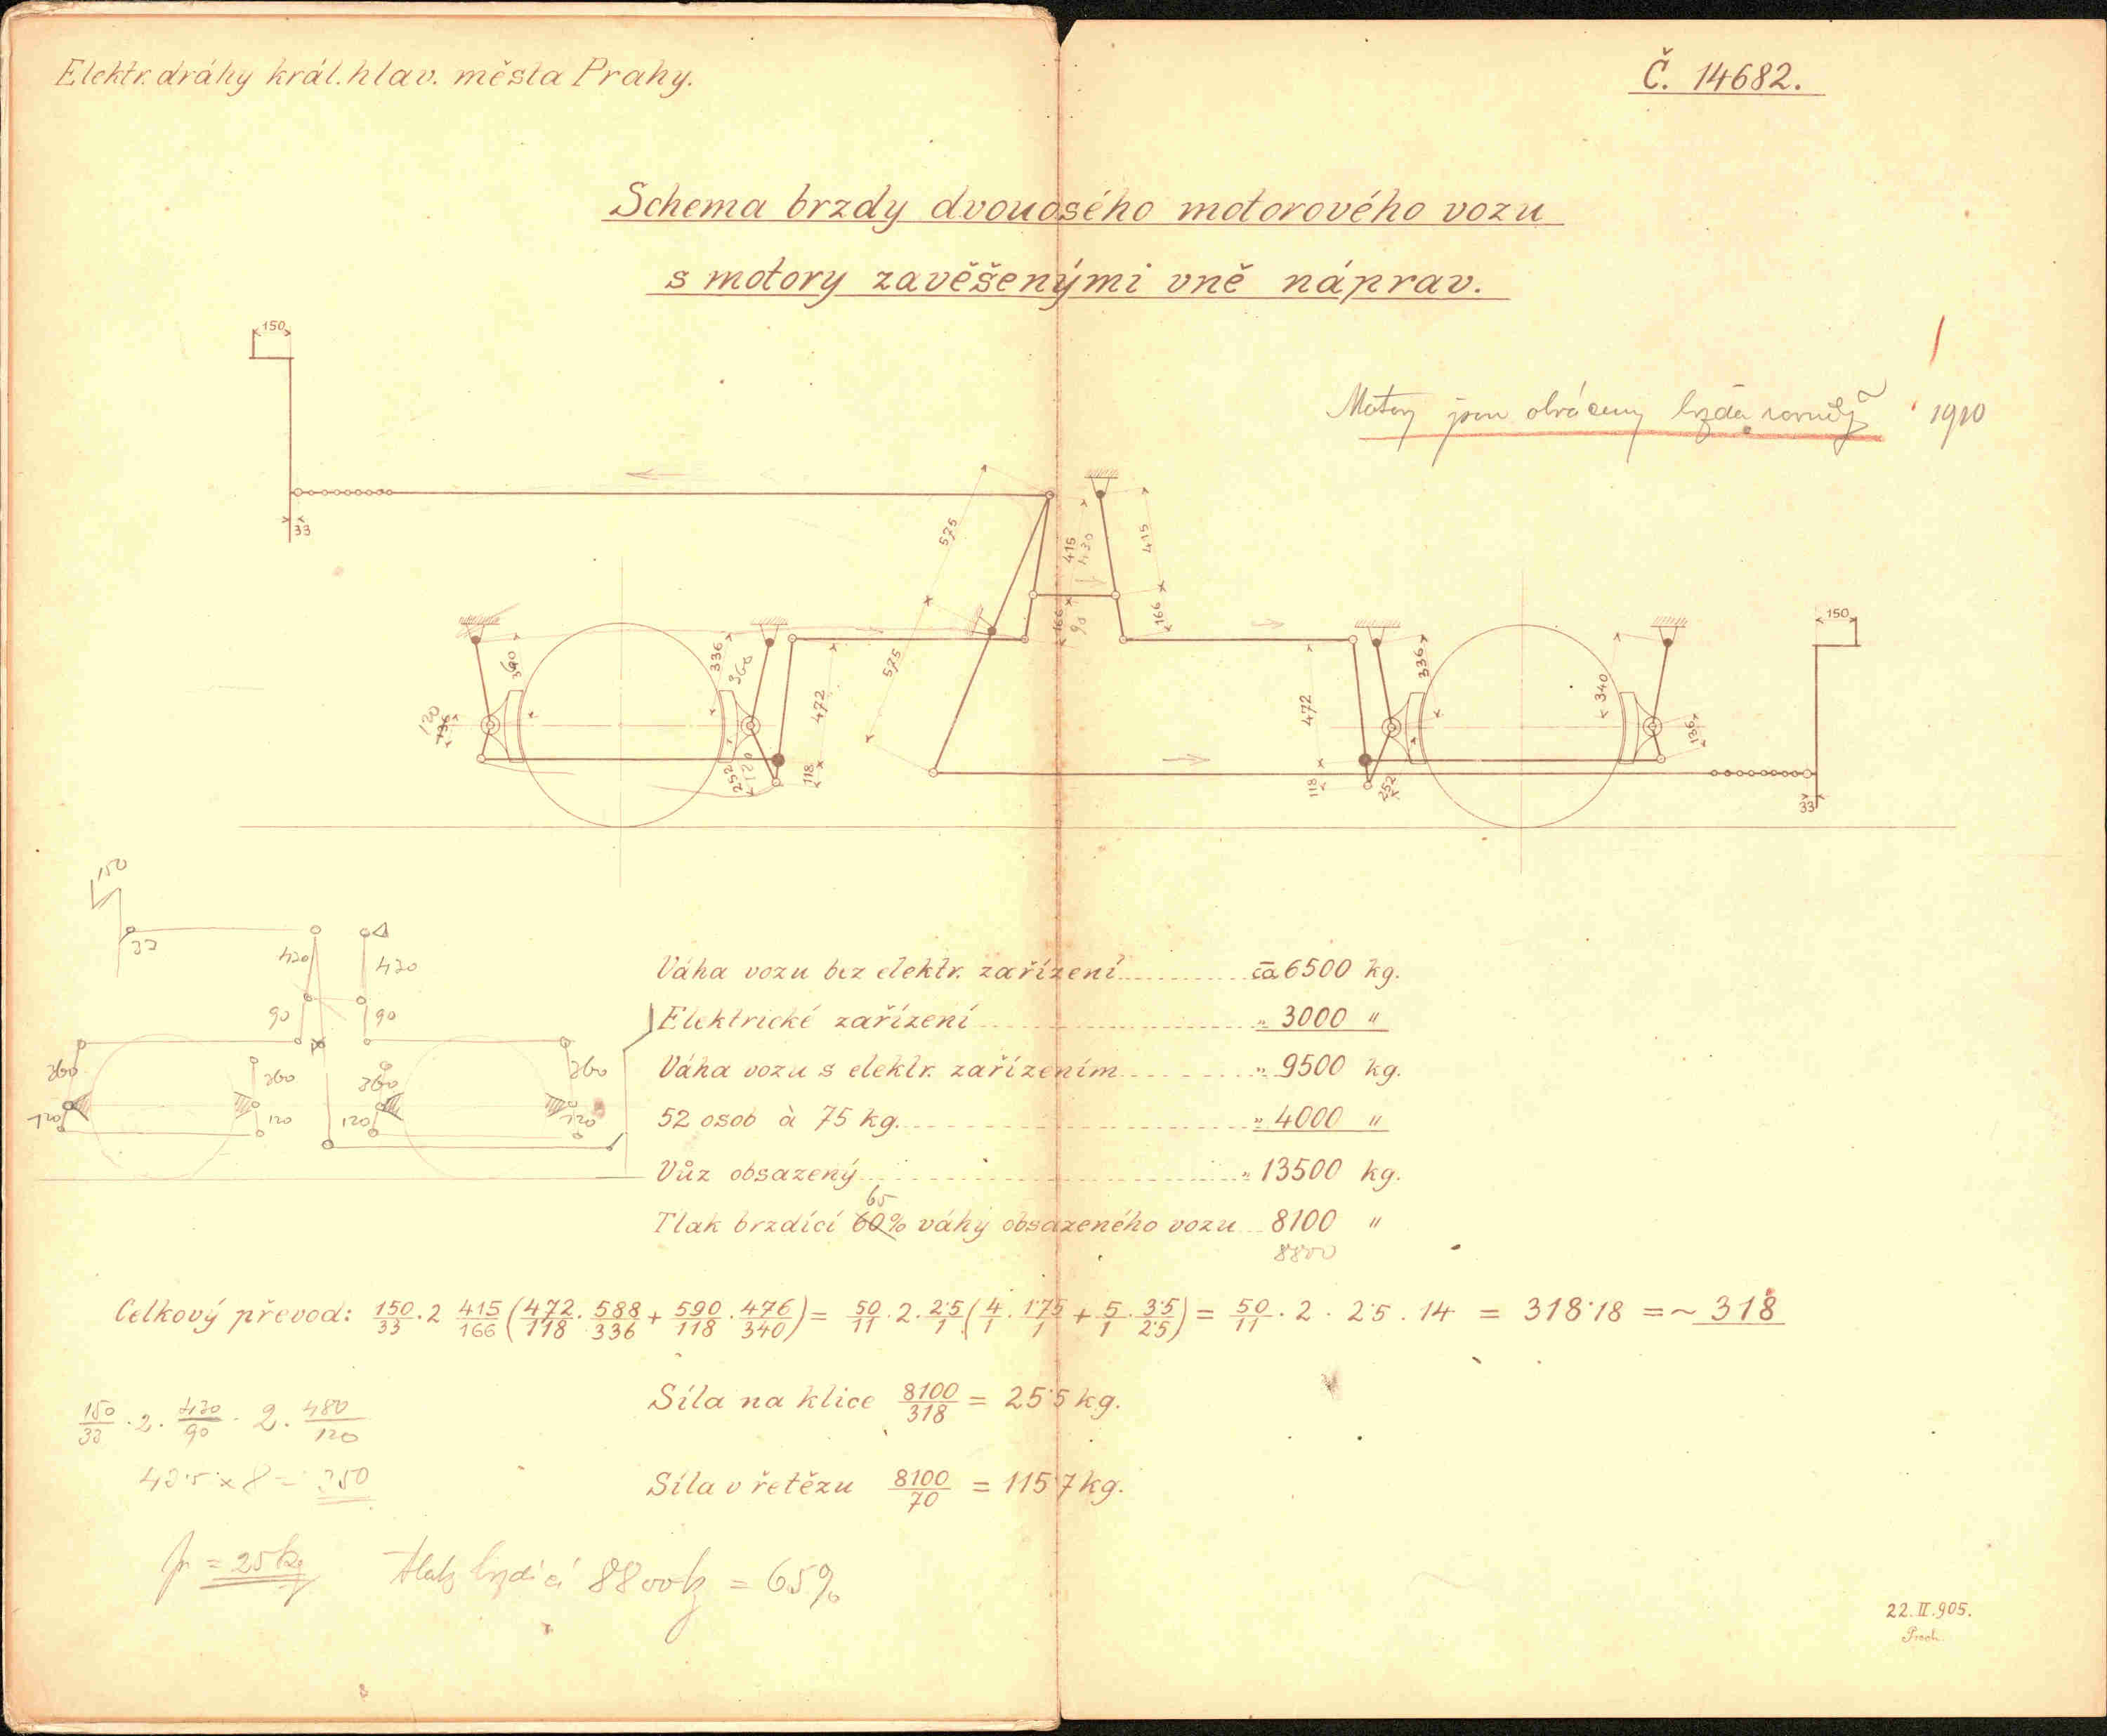 Elektr. dráhy král. hlav. města Prahy.
Č. 14682.
Schema brzdy dvouosého motorového vozu
s motory zavěšenými vně náprav.
Motory jsou obráceny brzda
1910
150
33
575
575
415
430
166
90
415
166
360
336
360
120
136
252
120
472
118
472
118
336
252
340
136
150
33
150
33
430
430
90
90
360
360
360
360
120
120
120
120
Váha vozu bez elektr. zařízení ca 6500 kg.
Elektrické zařízení " 3000 "
Váha vozu s elektr. zařízením " 9500 kg.
52 osob à 75 kg. " 4000 "
Vůz obsazený " 13500 kg.
65
Tlak brzdící 60% váhy obsazeného vozu 8100 "
8800
Celkový převod: 150/33 · 2 415/166 (472/118 · 588/336 + 590/118 · 476/340) = 50/11 · 2 · 2·5/1 (4/1 · 1·75/1 + 5/1 · 3·5/2·5) = 50/11 · 2 · 2·5 . 14 = 318·18 = ~ 318
Síla na klice 8100/318 = 25·5 kg.
150/33 · 2 · 430/90 · 2 · 480/120
43·5 × 8 = 350
Síla v řetězu 8100/70 = 115·7 kg.
p = 25 kg
tlak brzdící 8800 kg = 65%
22. II. 905.